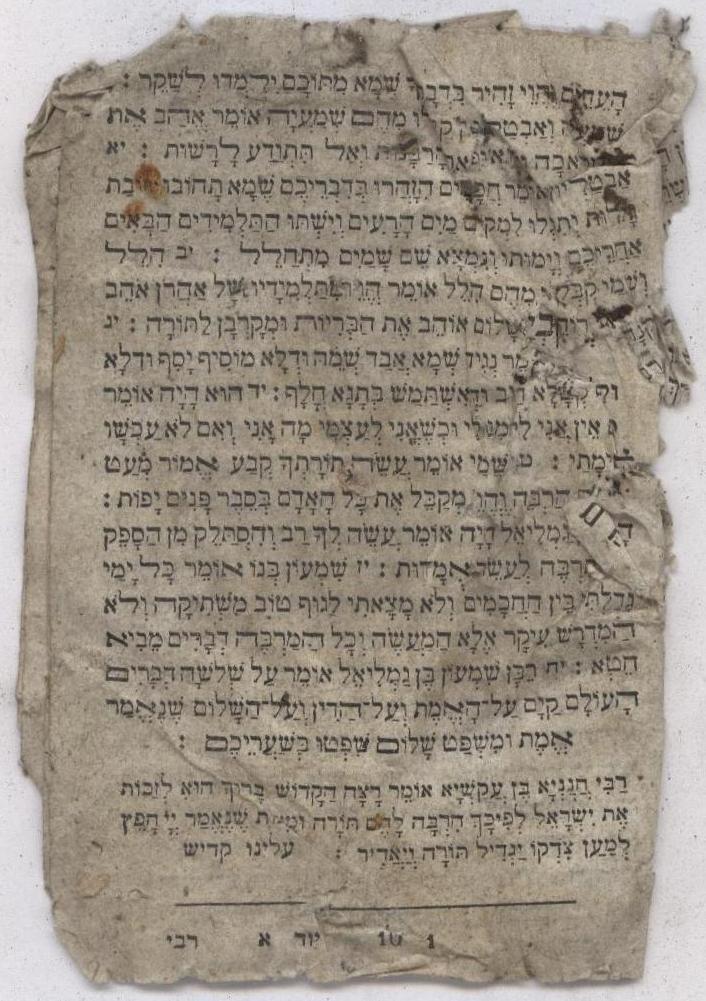 הָעֵדִים וֶהֱוֵי זָהִיר בִּדְבָרֶיךָ שֶׁמָּא מִתּוֹכָם יִלְמְדוּ לְשַׁקֵּר :
שְׁמַעְיָה וְאַבְטַלְיוֹן קִבְּלוּ מֵהֶם שְׁמַעְיָה אוֹמֵר אֱהַב אֶת
וְאַל תִּתְוַדַּע לָרָשׁוּת : יא
אַבְטַלְיוֹן אוֹמֵר חֲכָמִים הִזָּהֲרוּ בְּדִבְרֵיכֶם שֶׁמָּא תָחוֹבוּ חוֹבַת
גָּלוּת וְתִגְלוּ לִמְקוֹם מַיִם הָרָעִים וְיִשְׁתּוּ הַתַּלְמִידִים הַבָּאִים
אַחֲרֵיכֶם וְיָמוּתוּ וְנִמְצָא שֵׁם שָׁמַיִם מִתְחַלֵּל : יב הִלֵּל
וְשַׁמַּי קִבְּלוּ מֵהֶם הִלֵּל אוֹמֵר הֱוֵי מִתַּלְמִידָיו שֶׁל אַהֲרֹן אֹהֵב
שָׁלוֹם אוֹהֵב אֶת הַבְּרִיּוֹת וּמְקָרְבָן לַתּוֹרָה : יג
נְגִיד שְׁמָא אֲבַד שְׁמֵהּ וּדְלָא מוֹסִיף יָסֵף וּדְלָא
חַיָּב וּדְאִשְׁתַּמֵּשׁ בְּתָגָא חֲלָף : יד הוּא הָיָה אוֹמֵר
אֵין אֲנִי לִי מִי לִי וּכְשֶׁאֲנִי לְעַצְמִי מָה אֲנִי וְאִם לֹא עַכְשָׁו
אֵימָתַי : שַׁמַּי אוֹמֵר עֲשֵׂה תוֹרָתְךָ קֶבַע אֱמוֹר מְעַט
הַרְבֵּה וֶהֱוֵי מְקַבֵּל אֶת כָּל הָאָדָם בְּסֵבֶר פָּנִים יָפוֹת :
גַּמְלִיאֵל הָיָה אוֹמֵר עֲשֵׂה לְךָ רַב וְהִסְתַּלֵּק מִן הַסָּפֵק
תַּרְבֶּה לְעַשֵּׂר אֳמָדוּת : יז שִׁמְעוֹן בְּנוֹ אוֹמֵר כָּל יָמַי
גָּדַלְתִּי בֵּין הַחֲכָמִים וְלֹא מָצָאתִי לַגּוּף טוֹב מִשְּׁתִיקָה וְלֹא
הַמִּדְרָשׁ עִיקָר אֶלָּא הַמַּעֲשֶׂה וְכָל הַמַּרְבֶּה דְבָרִים מֵבִיא
חֵטְא : יח רַבָּן שִׁמְעוֹן בֶּן גַּמְלִיאֵל אוֹמֵר עַל שְׁלֹשָׁה דְבָרִים
הָעוֹלָם קַיָּם עַל־הָאֱמֶת וְעַל־הַדִּין וְעַל־הַשָּׁלוֹם שֶׁנֶּאֱמַר
אֱמֶת וּמִשְׁפַּט שָׁלוֹם שִׁפְטוּ בְּשַׁעֲרֵיכֶם :
רַבִּי חֲנַנְיָא בֶּן עֲקַשְׁיָא אוֹמֵר רָצָה הַקָּדוֹשׁ בָּרוּךְ הוּא לְזַכּוֹת
אֶת יִשְׂרָאֵל לְפִיכָךְ הִרְבָּה לָהֶם תּוֹרָה וּמִצְוֹת שֶׁנֶּאֱמַר יְיָ חָפֵץ
לְמַעַן צִדְקוֹ יַגְדִּיל תּוֹרָה וְיַאְדִּיר : עלינו קדיש
1 10 יוד א רבי